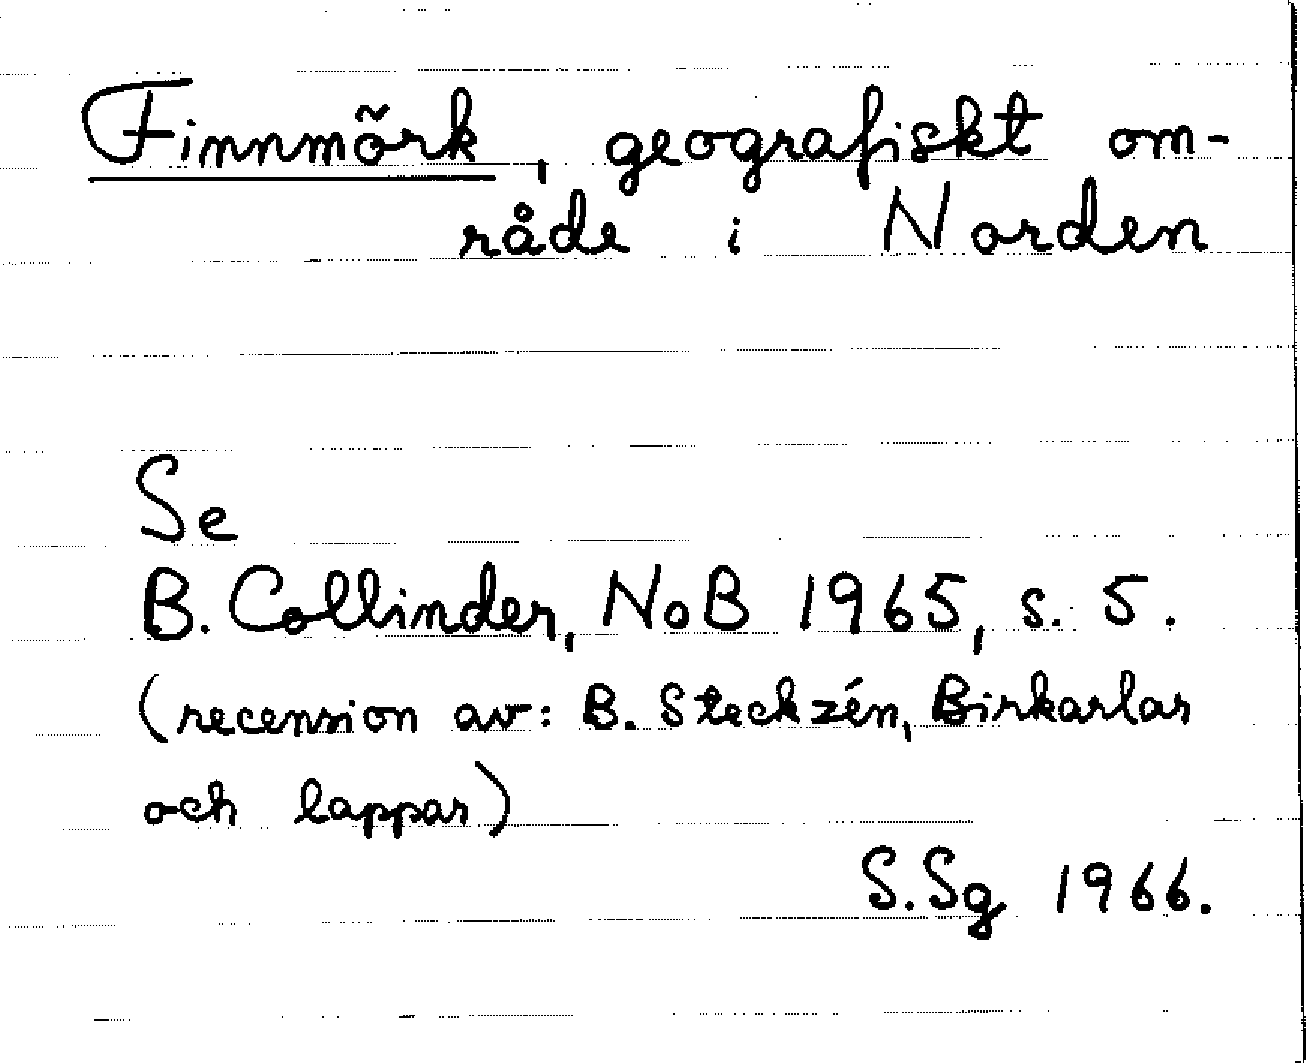 Finnmörk, geografiskt om-
råde i Norden
Se
B. Collinder, NoB 1965, s. 5.
(recension av: B. Steckzén, Birkarlar
och lappar)
S.Sg 1966.